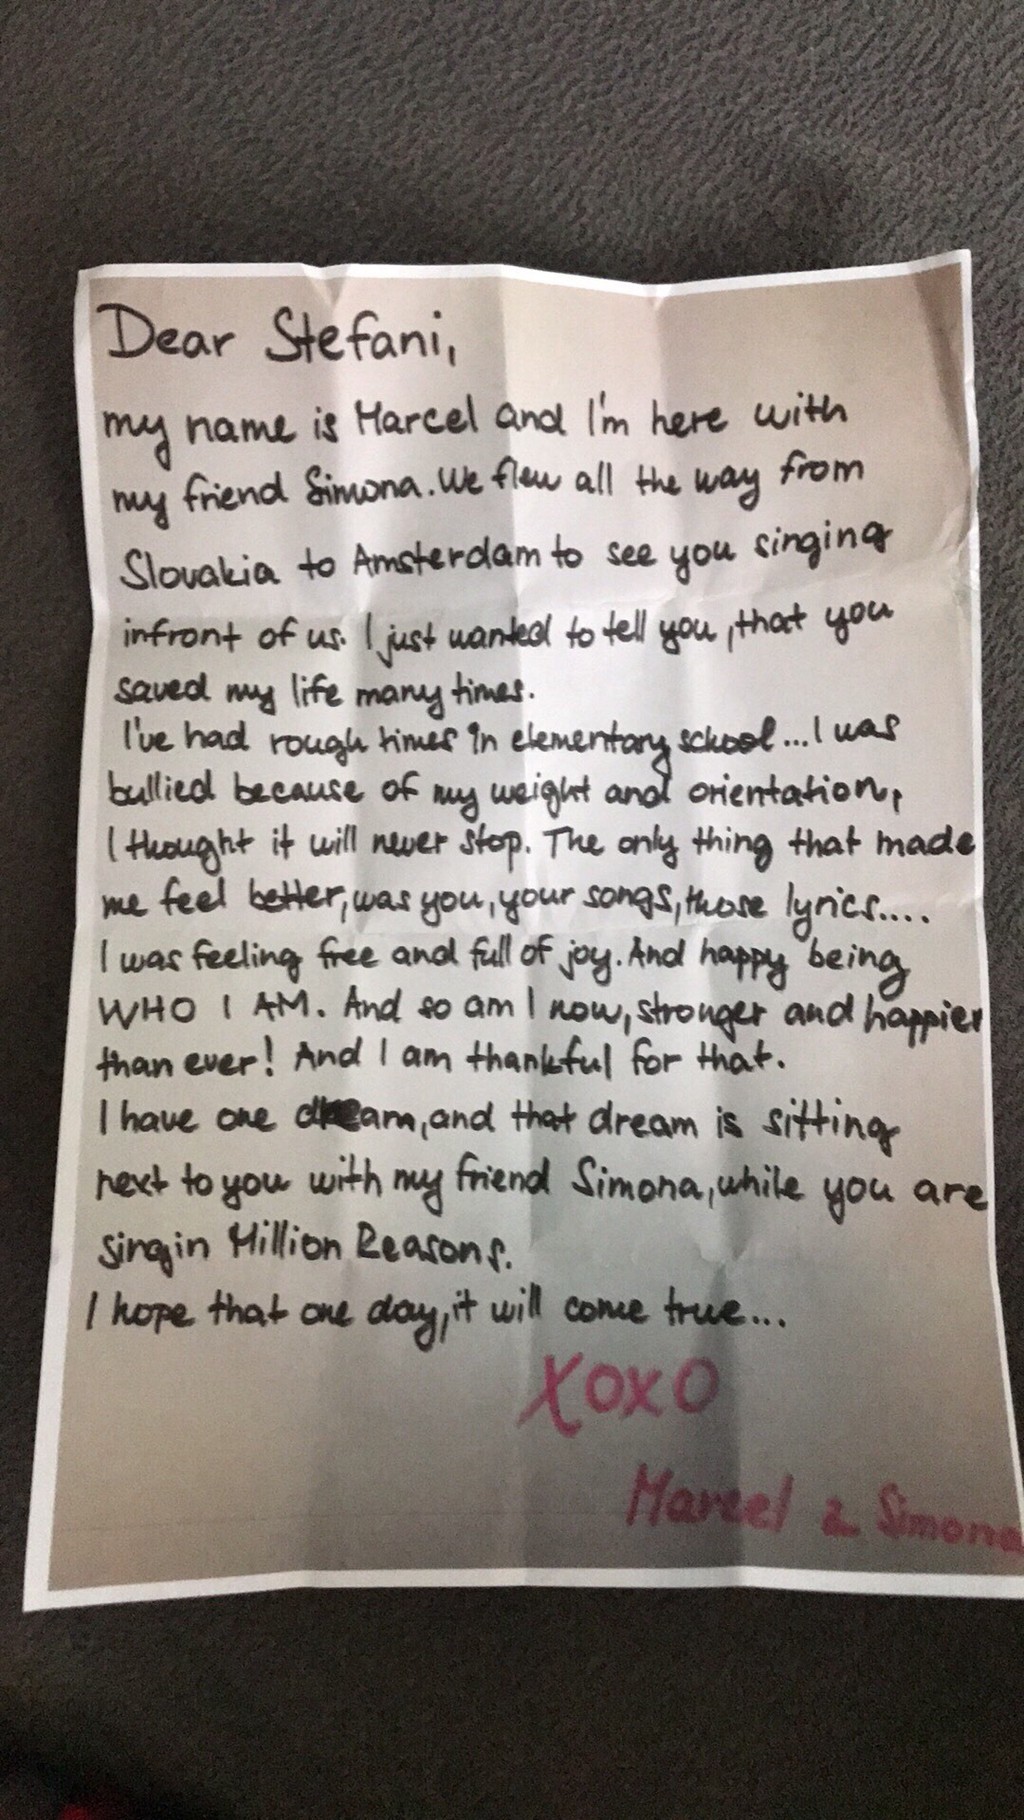 Dear Stefani,
my name is Marcel and I'm here with
my friend Simona. We flew all the way from
Slovakia to Amsterdam to see you singing
infront of us. I just wanted to tell you, that you
saved my life many times.
I've had rough times in elementary school... I was
bullied because of my weight and orientation,
I thought it will never stop. The only thing that made
me feel better, was you, your songs, those lyrics....
I was feeling free and full of joy. And happy being
WHO I AM. And so am I now, stronger and happier
than ever! And I am thankful for that.
I have one dream, and that dream is sitting
next to you with my friend Simona, while you are
singin Million Reasons.
I hope that one day, it will come true...
XOXO
Marcel & Simona